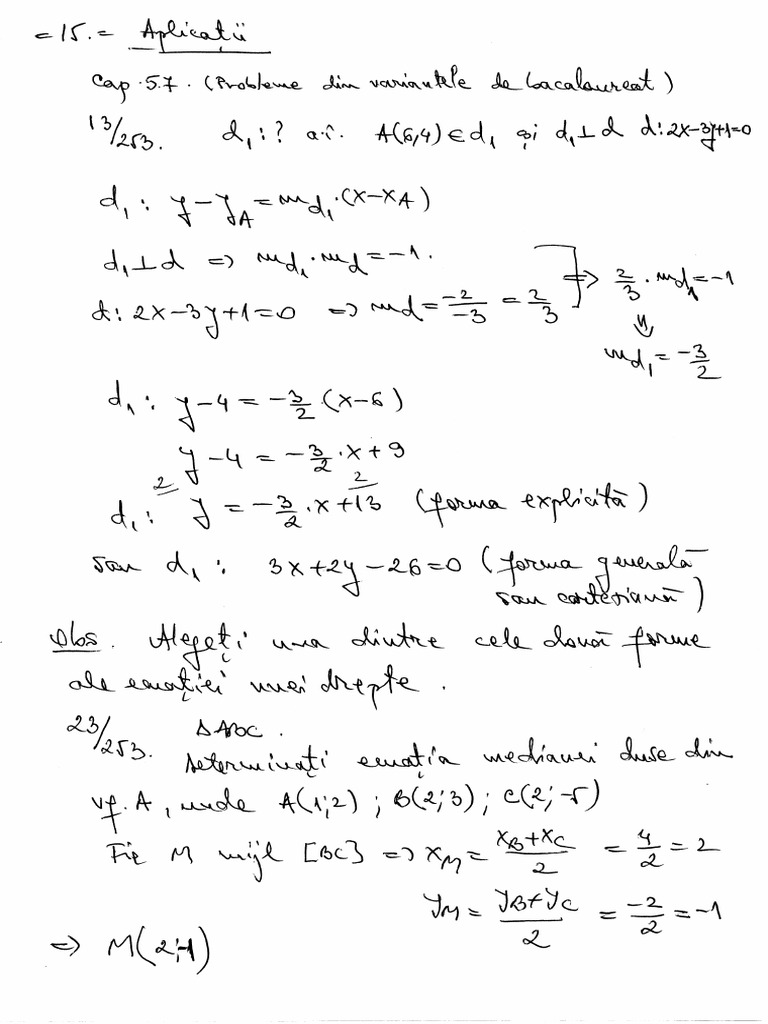 = 15. = Aplicații
Cap. 5.7. (Probleme din variantele de bacalaureat)
13/253. d₁ : ? a.î. A(6,4) ∈ d₁ și d₁ ⊥ d d: 2x-3y+1=0
d₁ : y - y_A = m_d₁ · (x - x_A)
d₁ ⊥ d => m_d₁ · m_d = -1.
d: 2x-3y+1=0 => m_d = -2/-3 = 2/3 => 2/3 · m_d₁ = -1
⇓
m_d₁ = -3/2
d₁ : y-4 = -3/2 · (x-6)
y-4 = -3/2 · x + 9
d₁ : ²⁄ y = -3/2 · x + ²⁄ 13 (forma explicită)
sau d₁ : 3x+2y-26=0 (forma generală
sau carteziană)
Obs. Alegeți una dintre cele două forme
ale ecuației unei drepte.
23/253. ΔABC.
Determinați ecuația medianei duse din
vf. A, unde A(1;2) ; B(2;3) ; C(2;-5)
Fie M mijl [BC] => x_M = (x_B + x_C)/2 = 4/2 = 2
y_M = (y_B + y_C)/2 = -2/2 = -1
=> M(2;-1)